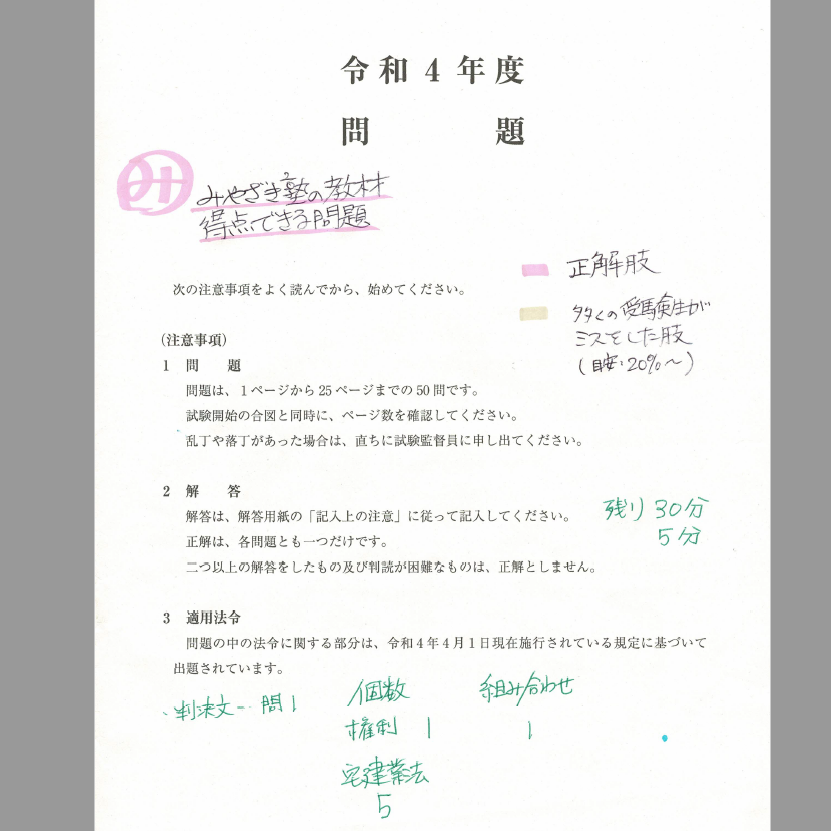 令和4年度
問 題
み
みやざき塾の教材
得点できる問題
正解肢
次の注意事項をよく読んでから、始めてください。
多くの受験生が
ミスをした肢
(目安:20%〜)
(注意事項)
1 問 題
問題は、1ページから25ページまでの50問です。
試験開始の合図と同時に、ページ数を確認してください。
乱丁や落丁があった場合は、直ちに試験監督員に申し出てください。
2 解 答
解答は、解答用紙の「記入上の注意」に従って記入してください。
残り 30分
正解は、各問題とも一つだけです。
5分
二つ以上の解答をしたもの及び判読が困難なものは、正解としません。
3 適用法令
問題の中の法令に関する部分は、令和4年4月1日現在施行されている規定に基づいて
出題されています。
・判決文=問1
個数
組み合わせ
権利 1
1
宅建業法
5